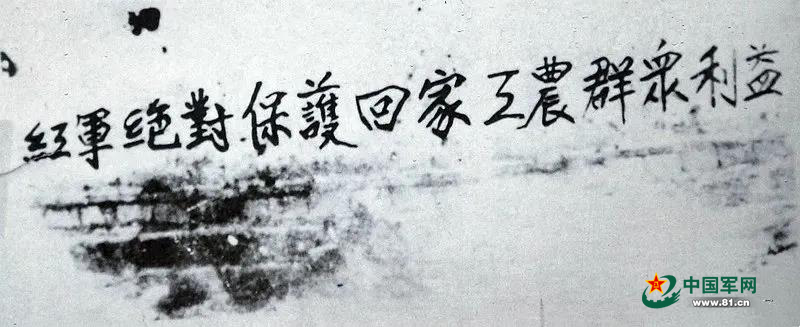 紅軍絕對保護回家工農群眾利益
中国军网
www.81.cn